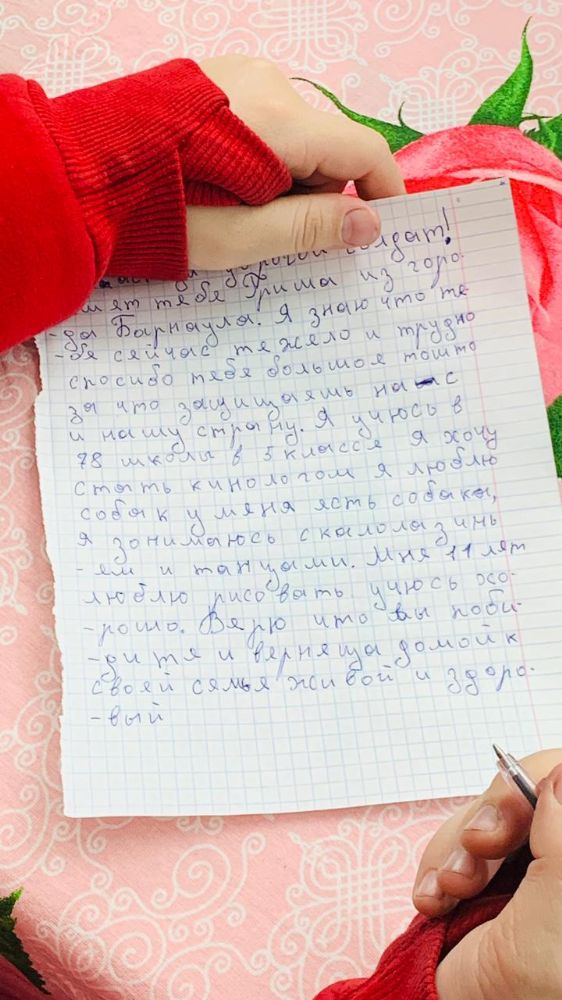 дорогой солдат!
тебе Гриша из горо-
-да Барнаула. Я знаю что те-
-бе сейчас тежело и трудно
спосибо тебе большое тошто
за что защищаешь нас
и нашу страну. Я учюсь в
78 школы в 5 классе я хочу
стать кинологом я люблю
собак у меня ясть собака,
я зонимаюсь скалолазинь
-ем и танцами. Мне 11 лят
люблю рисовать учюсь хо-
-рошо. Верю что вы поби-
-дитя и верняща домой к
своей сямья живой и здоро-
-вый